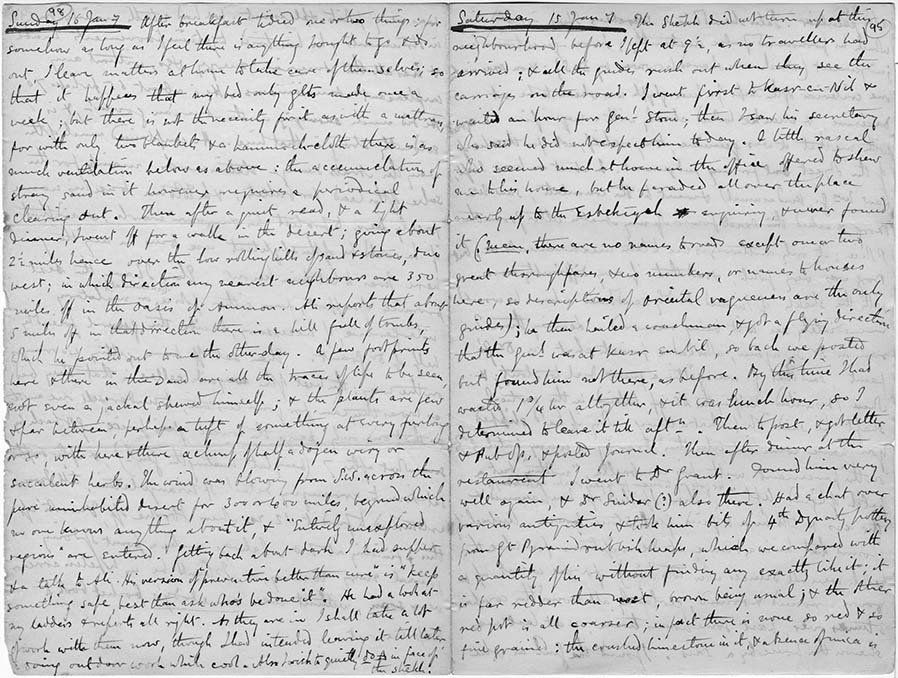 98
Sunday 16 Jan 7 After breakfast tidied one or two things; for
somehow as long as I feel there is anything I ought to go & do
out, I leave matters at home to take care of themselves; so
that it happens that my bed only gets made once a
week; but there is not the necessity for it as with a mattress,
for with only two blankets & a hammock-cloth there is as
much ventilation below as above: the accumulation of
stray sand in it however requires a periodical
clearing out. Then after a quiet read, & a light
dinner, I went off for a walk in the desert; going about
2½ miles hence over the low rolling hills of sand & stones, due
west; in which direction my nearest neighbours are 350
miles off in the Oasis of Ammon. Ali reports that about
5 miles off in that direction there is a hill full of tombs,
which he pointed out to me the other day. A few footprints
here & there in the sand are all the traces of life to be seen,
not even a jackal shewed himself; & the plants are few
& far between, perhaps a tuft of something at every furlong
or so, with here & there a clump of half a dozen wiry or
succulent herbs. The wind was blowing from S.W. across the
pure uninhabited desert for 300 or 400 miles, beyond which
no one knows anything about it, & "Entirely unexplored
regions" are entered. Getting back about dark I had supper
& a talk to Ali. His version of "prevention better than cure" is "keep
something safe best than ask who's be done it". He had a look at
my ladders & reports all right. As they are in I shall take a lot
of work with them now, though I had intended leaving it till later
& doing out door work while cool. Also I wish to quietly do it in face of
the sheikh.
95
Saturday 15 Jan 7 The Sheikh did not turn up at this
neighbourhood before I left at 9½, as no travellers had
arrived; & all the guides rush out when they see the
carriages on the road. I went first to Kasr-en-Nil &
waited an hour for Genl Stone, then I saw his secretary
who said he did not expect him to day. A little rascal
who seemed much at home in the office offered to shew
me to his house, but he paraded all over the place
nearly up to the Esbekiyeh enquiring, & never found
it (Mem. there are no names to roads except one or two
great thoroughfares, & no numbers, or names to houses
here, so descriptions of oriental vagueness are the only
guides); he then hailed a coachman & got a flying direction
that the Genl was at Kasr en Nil, so back we posted
but found him not there, as before. By this time I had
wasted 1¾ hr altogether, & it was lunch hour, so I
determined to leave it till aftn. Then to post, & got letter
& Pub Ops, & posted Journal. Then after dinner at the
restaurant I went to Dr Grant. Found him very
well again, & Dr Snider (?) also there. Had a chat over
various antiquities & took him bits of 4th Dynasty pottery
from Gt Pyramid rubbish heaps, which we compared with
a quantity of his without finding any exactly like it; it
is far redder than most, brown being usual; & the other
red pot is all coarser; in fact there is none so red & so
fine grained: the crushed limestone in it, & absence of mica is